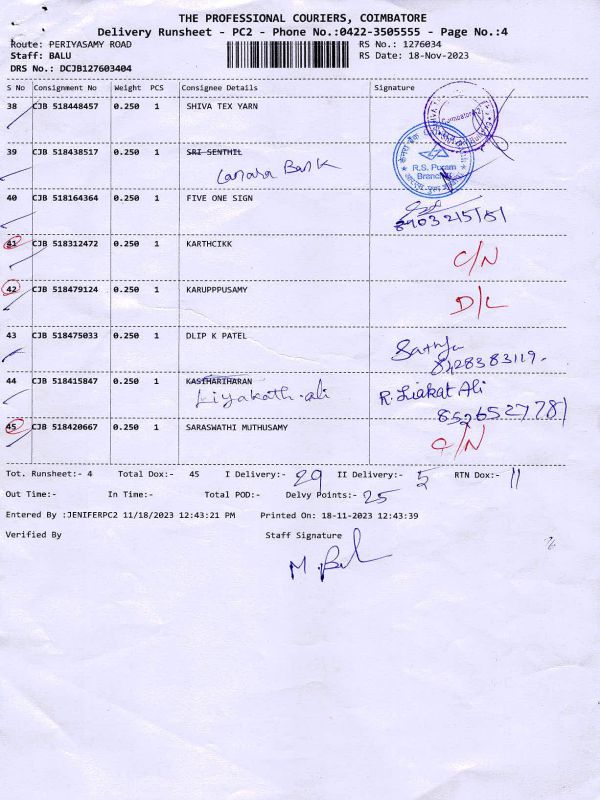 THE PROFESSIONAL COURIERS, COIMBATORE
Delivery Runsheet - PC2 - Phone No.:0422-3505555 - Page No.:4
Route: PERIYASAMY ROAD RS No.: 1276034
Staff: BALU RS Date: 18-Nov-2023
DRS No.: DCJB127603404
S No Consignment No Weight PCS Consignee Details Signature
38 CJB 518448457 0.250 1 SHIVA TEX YARN
39 CJB 518438517 0.250 1 SRI SENTHIL
Canara Bank
R.S. Puram
Branch
40 CJB 518164364 0.250 1 FIVE ONE SIGN
41 CJB 518312472 0.250 1 KARTHCIKK
C/N
42 CJB 518479124 0.250 1 KARUPPPUSAMY
D/L
43 CJB 518475033 0.250 1 DLIP K PATEL
Sathya
8428383119.
44 CJB 518415847 0.250 1 KASIHARIHARAN R. Liakat Ali
Liyakath.ali
8526527781
45 CJB 518420667 0.250 1 SARASWATHI MUTHUSAMY
C/N
Tot. Runsheet:- 4 Total Dox:- 45 I Delivery:- 29 II Delivery:- 5 RTN Dox:- 11
Out Time:- In Time:- Total POD:- Delvy Points:- 25
Entered By :JENIFERPC2 11/18/2023 12:43:21 PM Printed On: 18-11-2023 12:43:39
Verified By Staff Signature